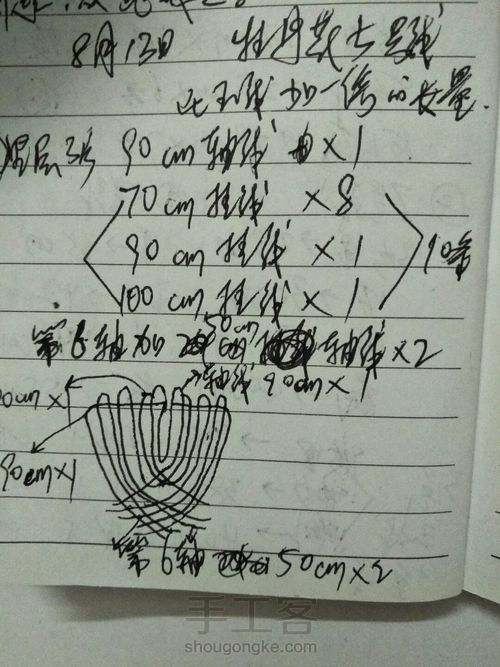 8月13日 牡丹花七号线
比玉线加一倍的长量
90cm轴线 ×1
70cm挂线 ×8
90cm挂线 ×1
100cm挂线 ×1
10条
第6轴加 50cm 轴线×2
轴线90cm×1
0cm×1
90cm×1
第6轴 50cm×2
手工客
shougongke.com